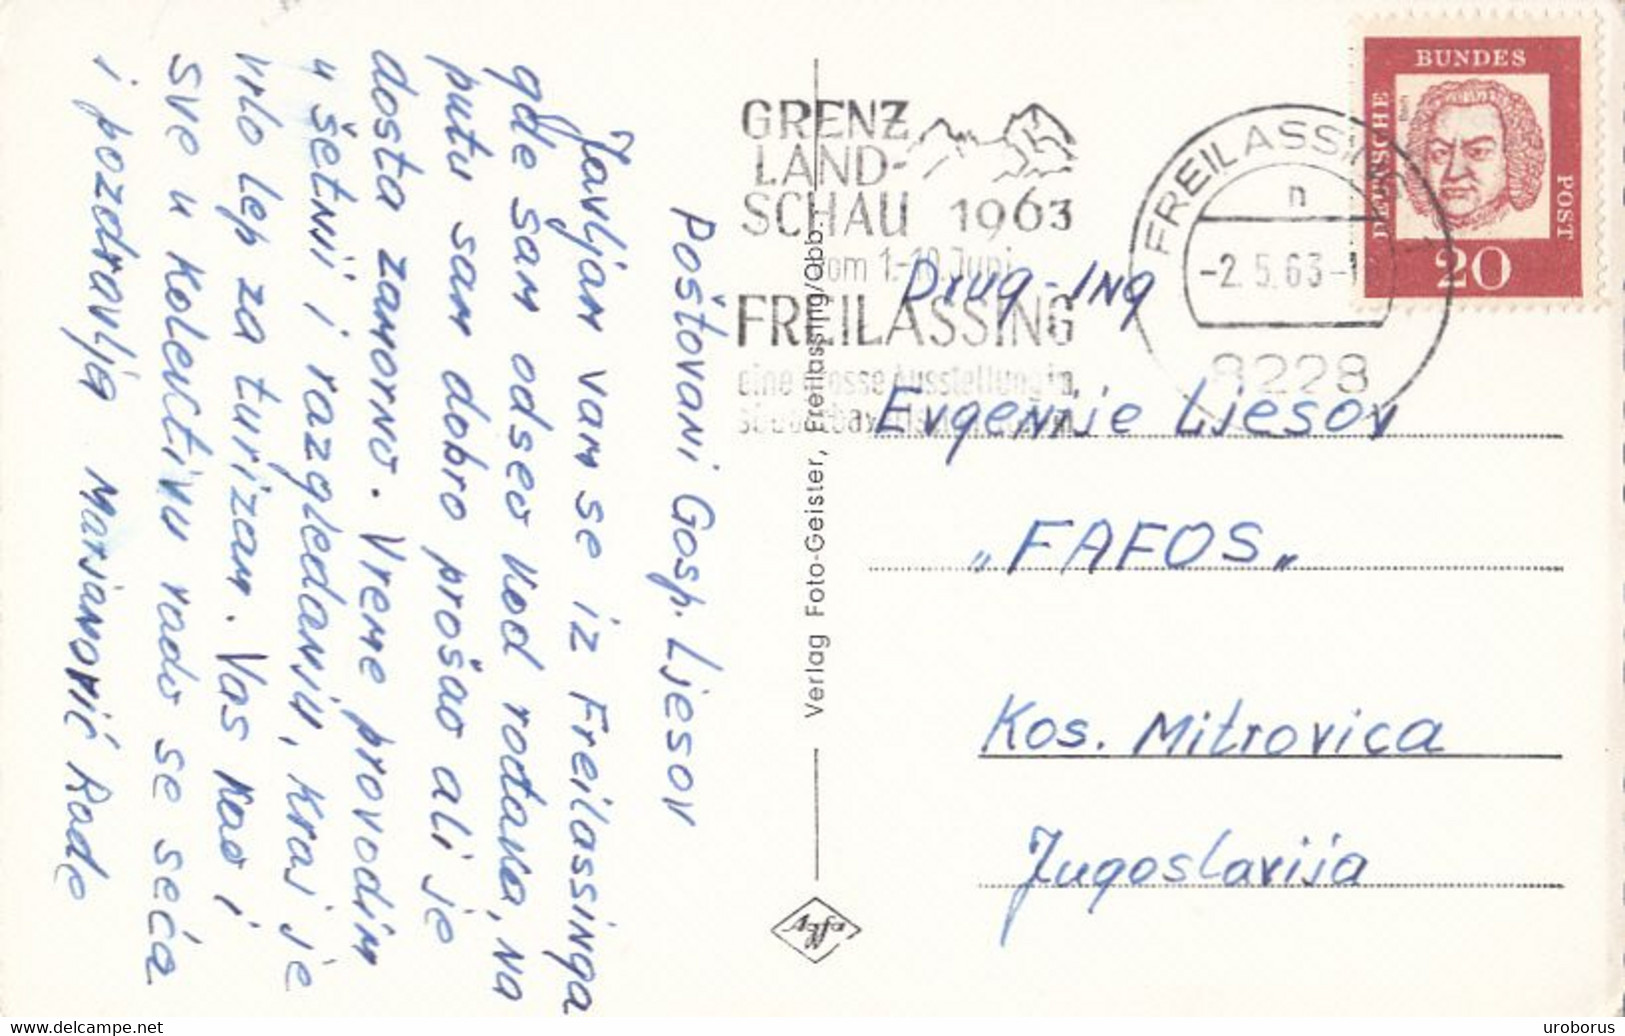 Poštovani Gosp. Ljesov
Javljam vam se iz Freilassinga
gde sam odseo kod rođaka, na
putu sam dobro prošao ali je
dosta zamorno. Vreme provodim
u šetnji i razgledanju, kraj je
vrlo lep za turizam. Vas kao i
sve u kolektivu rado se seća
i pozdravlja Marjanović Rade
GRENZ
LAND-
SCHAU 1963
vom 1.-10. Juni
FREILASSING
eine grosse Ausstellung im
FREILASSING
n
-2.5.63-1
8228
DEUTSCHE
BUNDES
POST
20
Drug-ing
Evgenije Ljesov
"FAFOS"
Kos. Mitrovica
Jugoslavija
Verlag Foto-Geister, Freilassing/Obb.
Agfa
www.delcampe.net
uroborus